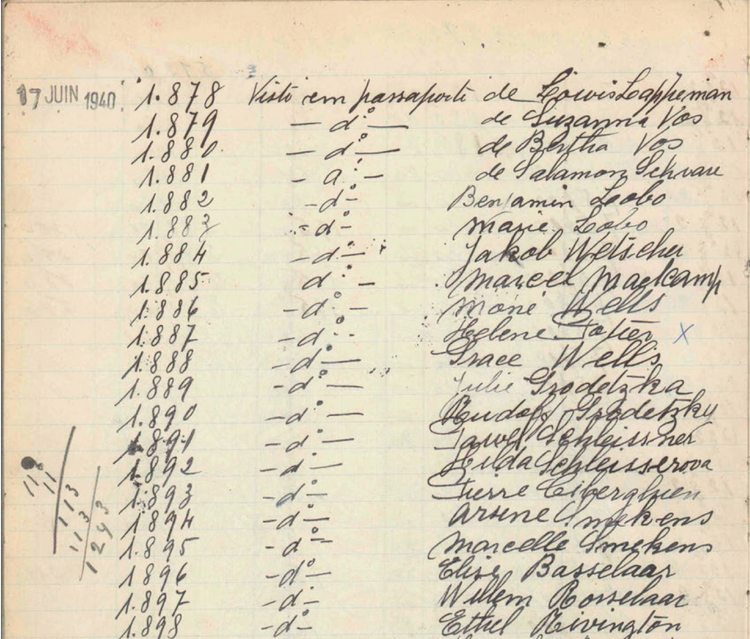 17 JUIN 1940 1.878 Visto em passaporte de Lowis Lappeman
1.879 — dº — de Suzanna Vos
1.880 — dº — de Bertha Vos
1.881 — dº — de Salamon
1.882 — dº — Benjamin Lobo
1.883 — dº — Marie Lobo
1.884 — dº — Jakob
1.885 dº — Marcel
1.886 — dº — Wells
1.887 — dº Helene X
1.888 — dº — Grace Wells
1.889 — dº — Julie Grodetzka
1.890 — dº — Rudolf Grodetzky
1.891 — dº — Schleissner
1.892 — dº — Hilda Schleisserova
1.893 — dº — Pierre
1.894 — dº — Arsene Smekens
1.895 — dº — Marcelle Smekens
1.896 — dº — Elise Basselaar
1.897 — dº — Willem Rosselaar
1.898 — dº — Ethel Rivington
11
113
113
1293